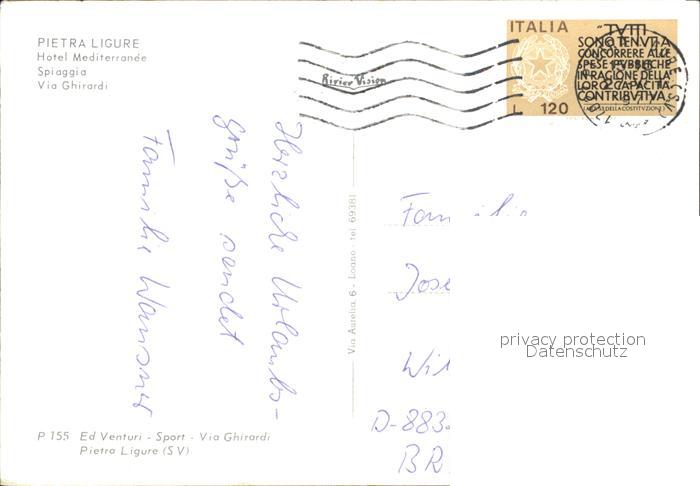 PIETRA LIGURE
Hotel Mediterranée
Spiaggia
Via Ghirardi
Rivier Vision
ITALIA
"TVTTI
SONO TENVTI A
CONCORRERE ALLE
SPESE PVBBLICHE
IN RAGIONE DELLA
LORO CAPACITÀ
CONTRIBVTIVA"
(ART. 53 DELLA COSTITVZIONE)
L 120
Herzliche Urlaubs-
grüße sendet
Familie
Via Aurelia 6 - Loano - tel 69381
Familie
Jose
Wil
D-883
BR
privacy protection
Datenschutz
P 155 Ed Venturi - Sport - Via Ghirardi
Pietra Ligure (SV)